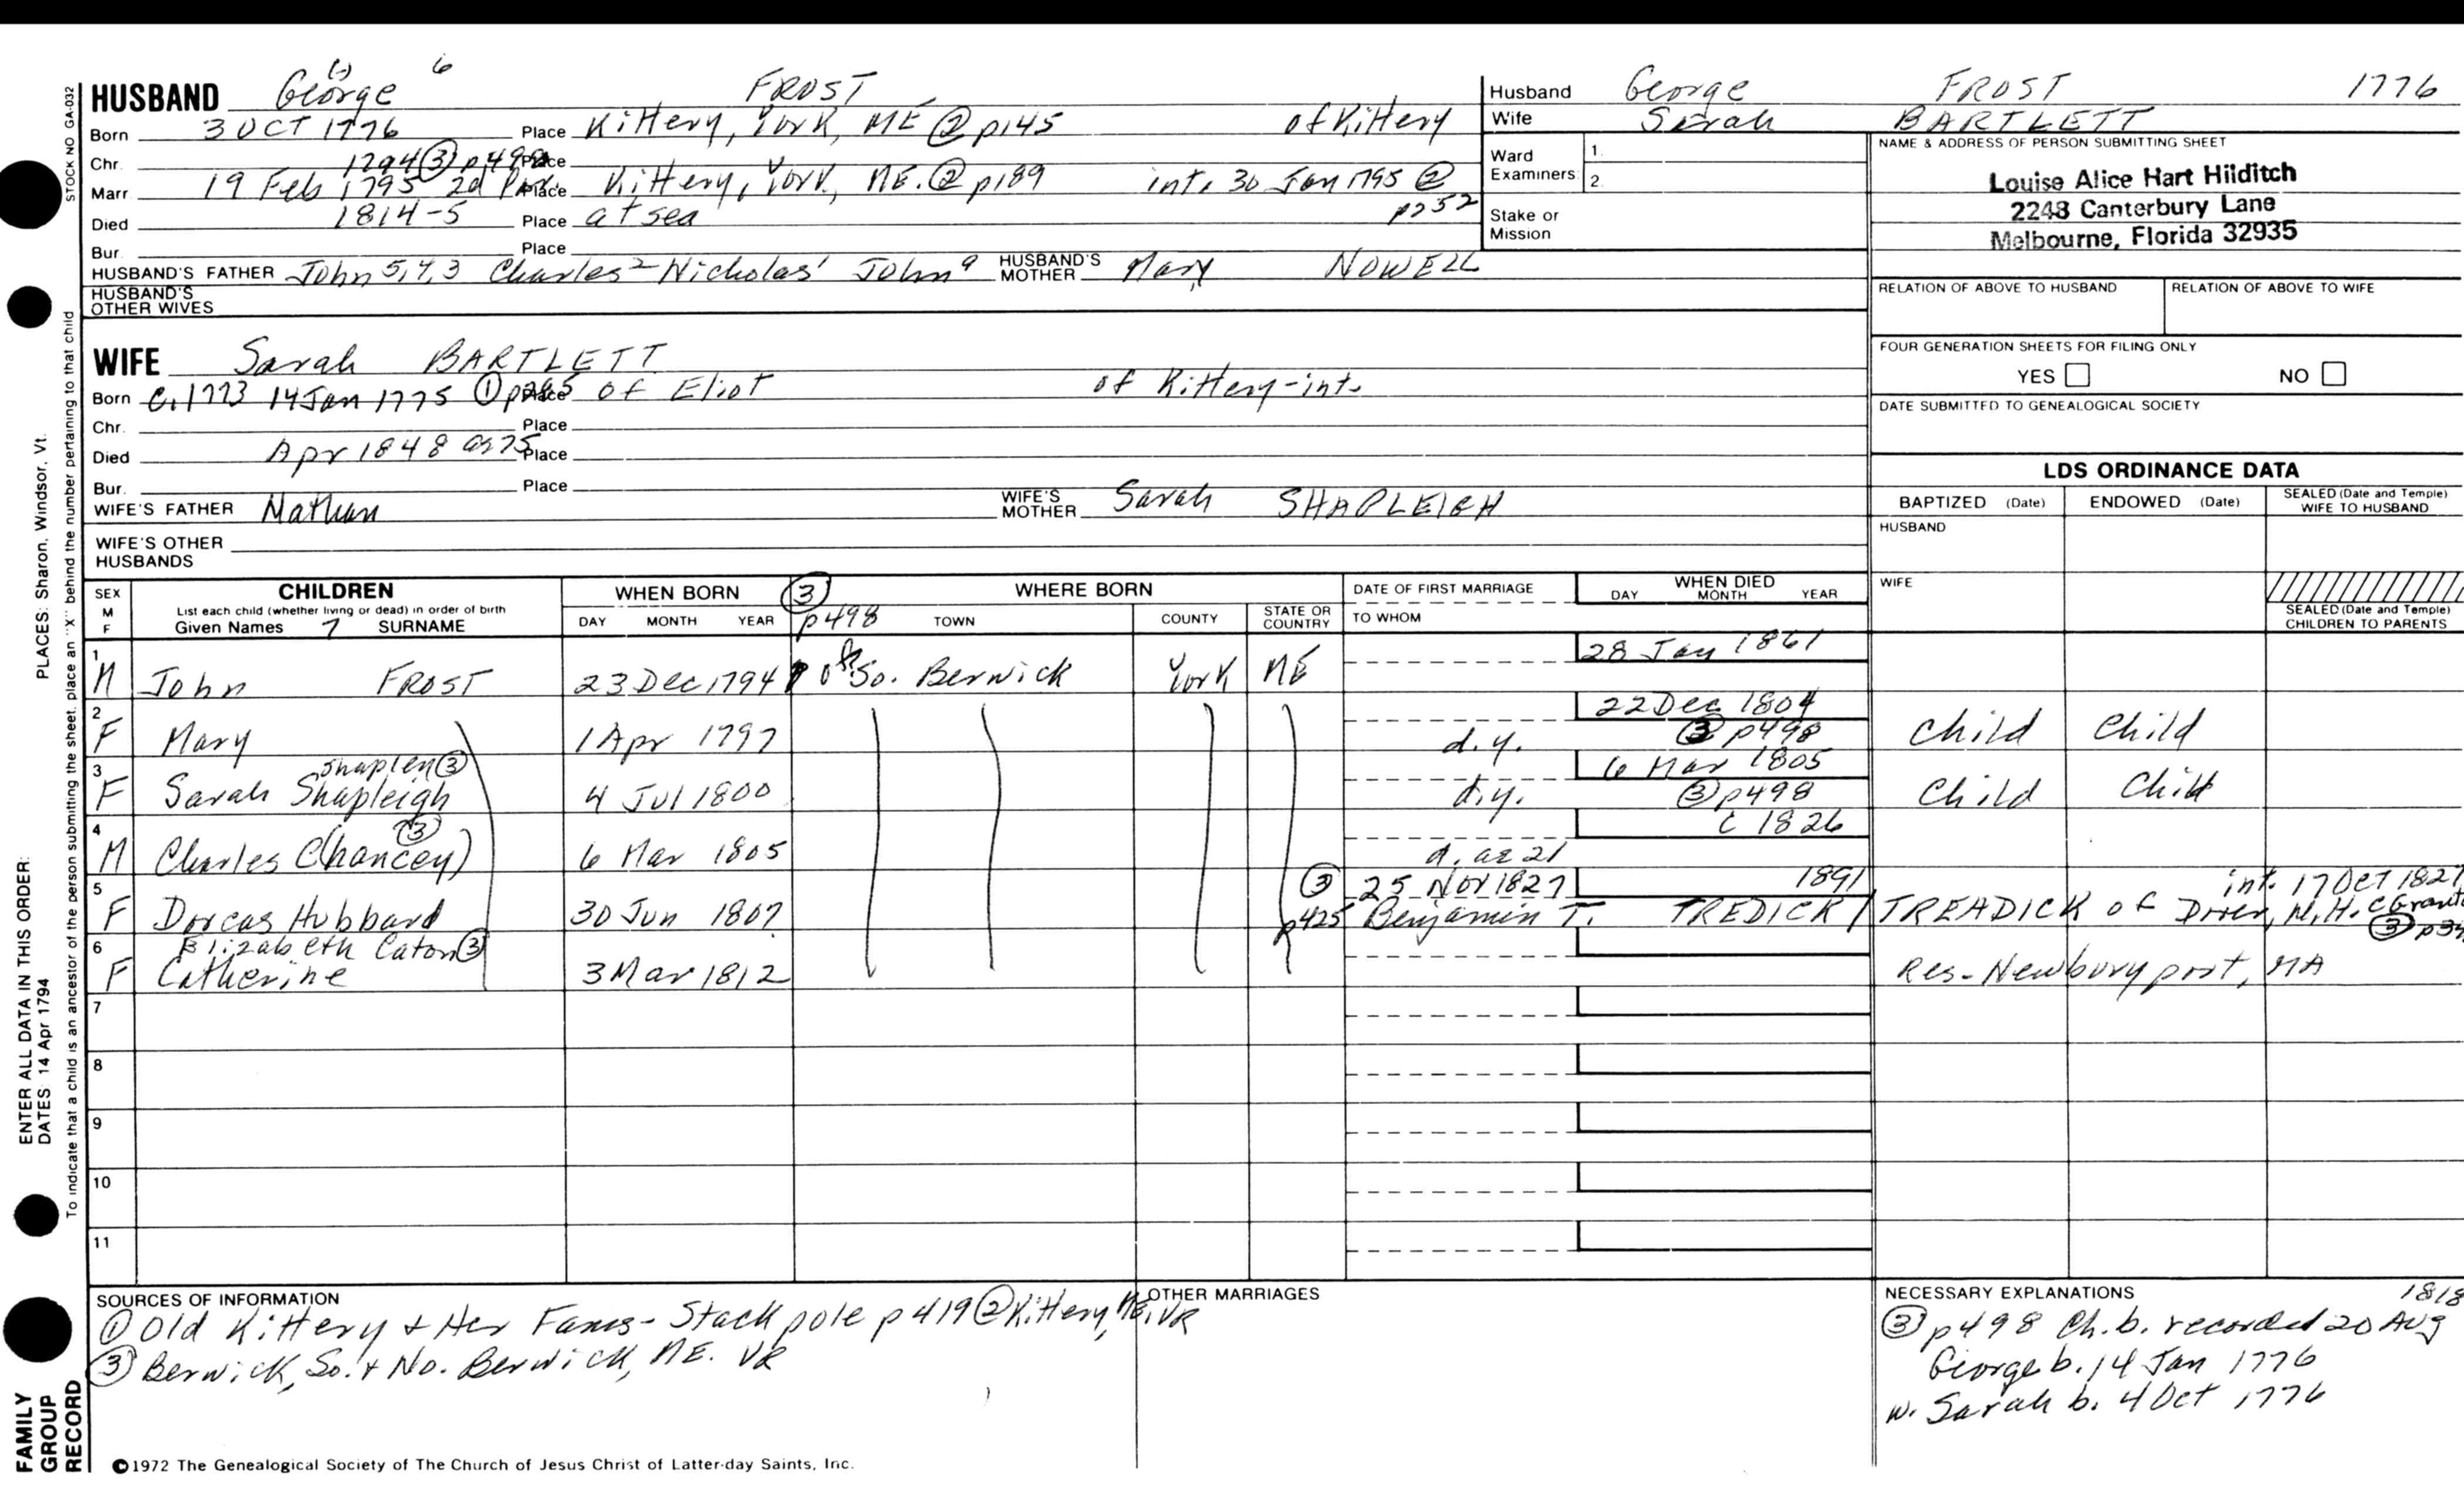 (-) 6
HUSBAND George FROST
Born 3 Oct 1776 Place Kittery, York, ME ② p145 of Kittery
Chr. 1794 ③ p498 Place
Marr. 19 Feb 1795 2d Par. Place Kittery, York, ME. ② p189 int. 30 Jan 1795 ② p252
Died 1814-5 Place at sea
Bur. Place
HUSBAND'S FATHER John 5,4,3 Charles 2 Nicholas 1 John a HUSBAND'S MOTHER Mary NOWELL
HUSBAND'S OTHER WIVES
WIFE Sarah BARTLETT
Born c.1773 14 Jan 1775 ① p285 Place of Eliot of Kittery-int.
Chr. Place
Died Apr 1848 ae 75 Place
Bur. Place
WIFE'S FATHER Nathan WIFE'S MOTHER Sarah SHAPLEIGH
WIFE'S OTHER HUSBANDS
Husband George FROST 1776
Wife Sarah BARTLETT
Ward Examiners 1. 2.
Stake or Mission
NAME & ADDRESS OF PERSON SUBMITTING SHEET
Louise Alice Hart Hilditch
2248 Canterbury Lane
Melbourne, Florida 32935
RELATION OF ABOVE TO HUSBAND RELATION OF ABOVE TO WIFE
FOUR GENERATION SHEETS FOR FILING ONLY
YES NO
DATE SUBMITTED TO GENEALOGICAL SOCIETY
LDS ORDINANCE DATA
BAPTIZED (Date) ENDOWED (Date) SEALED (Date and Temple) WIFE TO HUSBAND
HUSBAND
WIFE
SEALED (Date and Temple) CHILDREN TO PARENTS
SEX M F CHILDREN List each child (whether living or dead) in order of birth Given Names 7 SURNAME
WHEN BORN DAY MONTH YEAR
③ p498 WHERE BORN TOWN COUNTY STATE OR COUNTRY
DATE OF FIRST MARRIAGE TO WHOM
WHEN DIED DAY MONTH YEAR
1 M John FROST 23 Dec 1794 of So. Berwick York ME 28 Jan 1861
2 F Mary 1 Apr 1797 d.y. 22 Dec 1804 ③ p498 Child Child
3 F Sarah Shapleigh Shaplen ③ 4 Jul 1800 d.y. 6 Mar 1805 ③ p498 Child Child
4 M Charles C(hancey) ③ 6 Mar 1805 d. ae 21 c 1826
5 F Dorcas Hubbard 30 Jun 1807 ③ p425 25 Nov 1827 1891 Benjamin T. TREDICK / TREADICK of Dover, N.H. int. 17 Oct 1827 ③
6 F Elizabeth Caton ③ Catherine 3 Mar 1812 Res-Newburyport, MA
7
8
9
10
11
SOURCES OF INFORMATION
① Old Kittery & Her Fams- Stackpole p419 ② Kittery, ME. VR
③ Berwick, So. & No. Berwick, ME. VR
OTHER MARRIAGES
NECESSARY EXPLANATIONS 1818
③ p498 Ch. b. recorded 20 Aug
George b. 14 Jan 1776
w. Sarah b. 4 Oct 1776
©1972 The Genealogical Society of The Church of Jesus Christ of Latter-day Saints, Inc.
STOCK NO GA-032
To indicate that a child is an ancestor of the person submitting the sheet, place an "X" behind the number pertaining to that child
PLACES: Sharon, Windsor, Vt.
ENTER ALL DATA IN THIS ORDER:
DATES: 14 Apr 1794
FAMILY GROUP RECORD